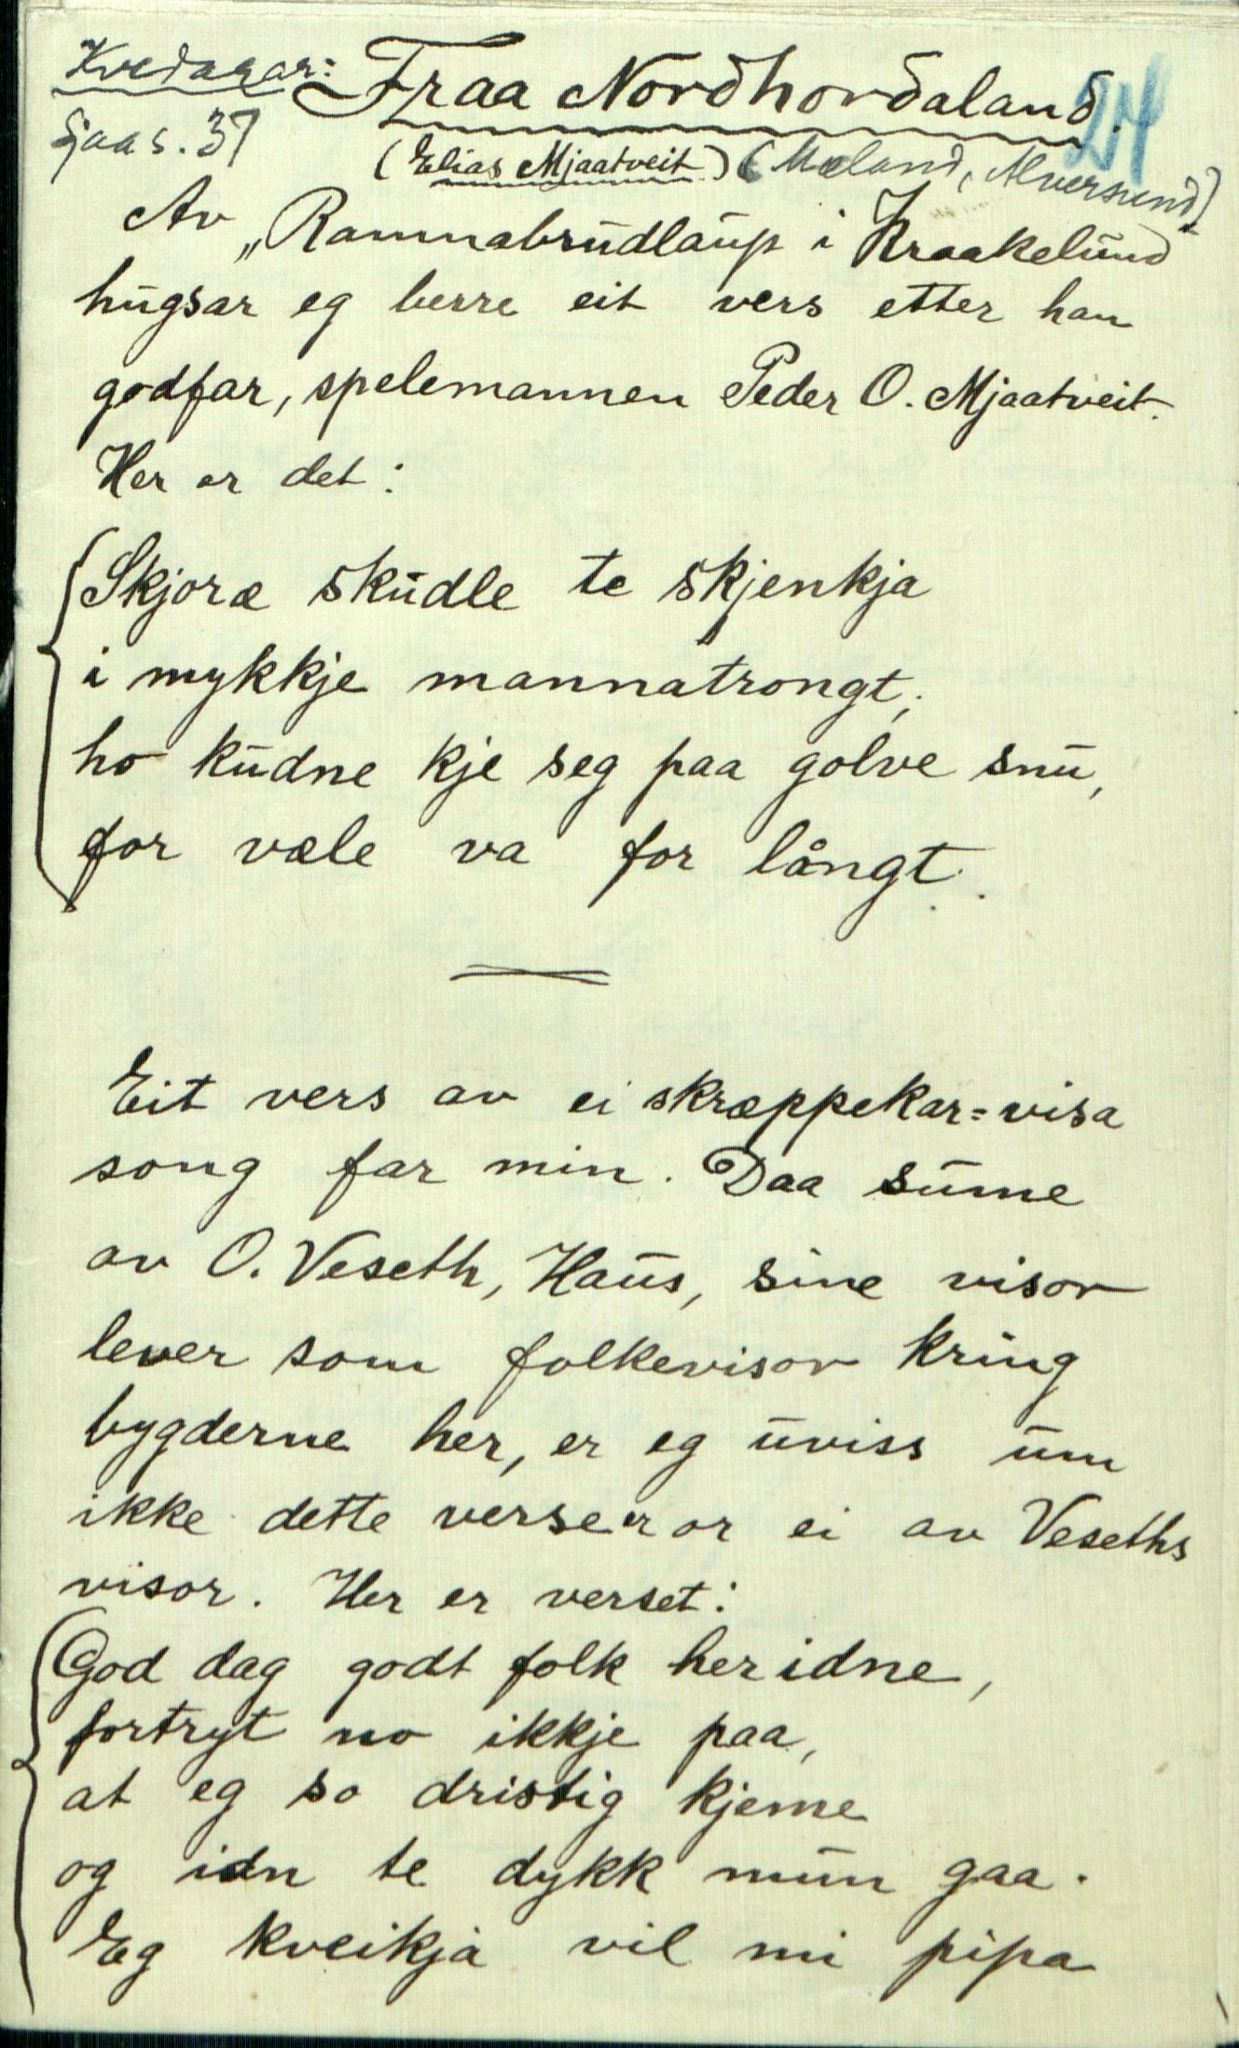 Kvedarar:
Sjaa s. 37
Fraa Nordhordaland.
24
(Elias Mjaatveit) (Mæland, Alversund)
Av „Ramnabrudlaup i Kraakelund"
hugsar eg berre eit vers etter han
godfar, spelemannen Peder O. Mjaatveit.
Her er det:
Skjoræ skudle te skjenkja
i mykkje mannatrongt,
ho kudne kje seg paa golve snu,
for væle va for långt.
Eit vers av ei skræppekar=visa
song far min. Daa sume
av O. Veseth, Haus, sine visor
lever som folkevisor kring
bygderne her, er eg uviss um
ikke dette verse er or ei av Veseths
visor. Her er verset:
God dag godt folk her idne,
fortryt no ikkje paa,
at eg so dristig kjeme
og idn te dykk mun gaa.
Eg kveikja vil mi pipa